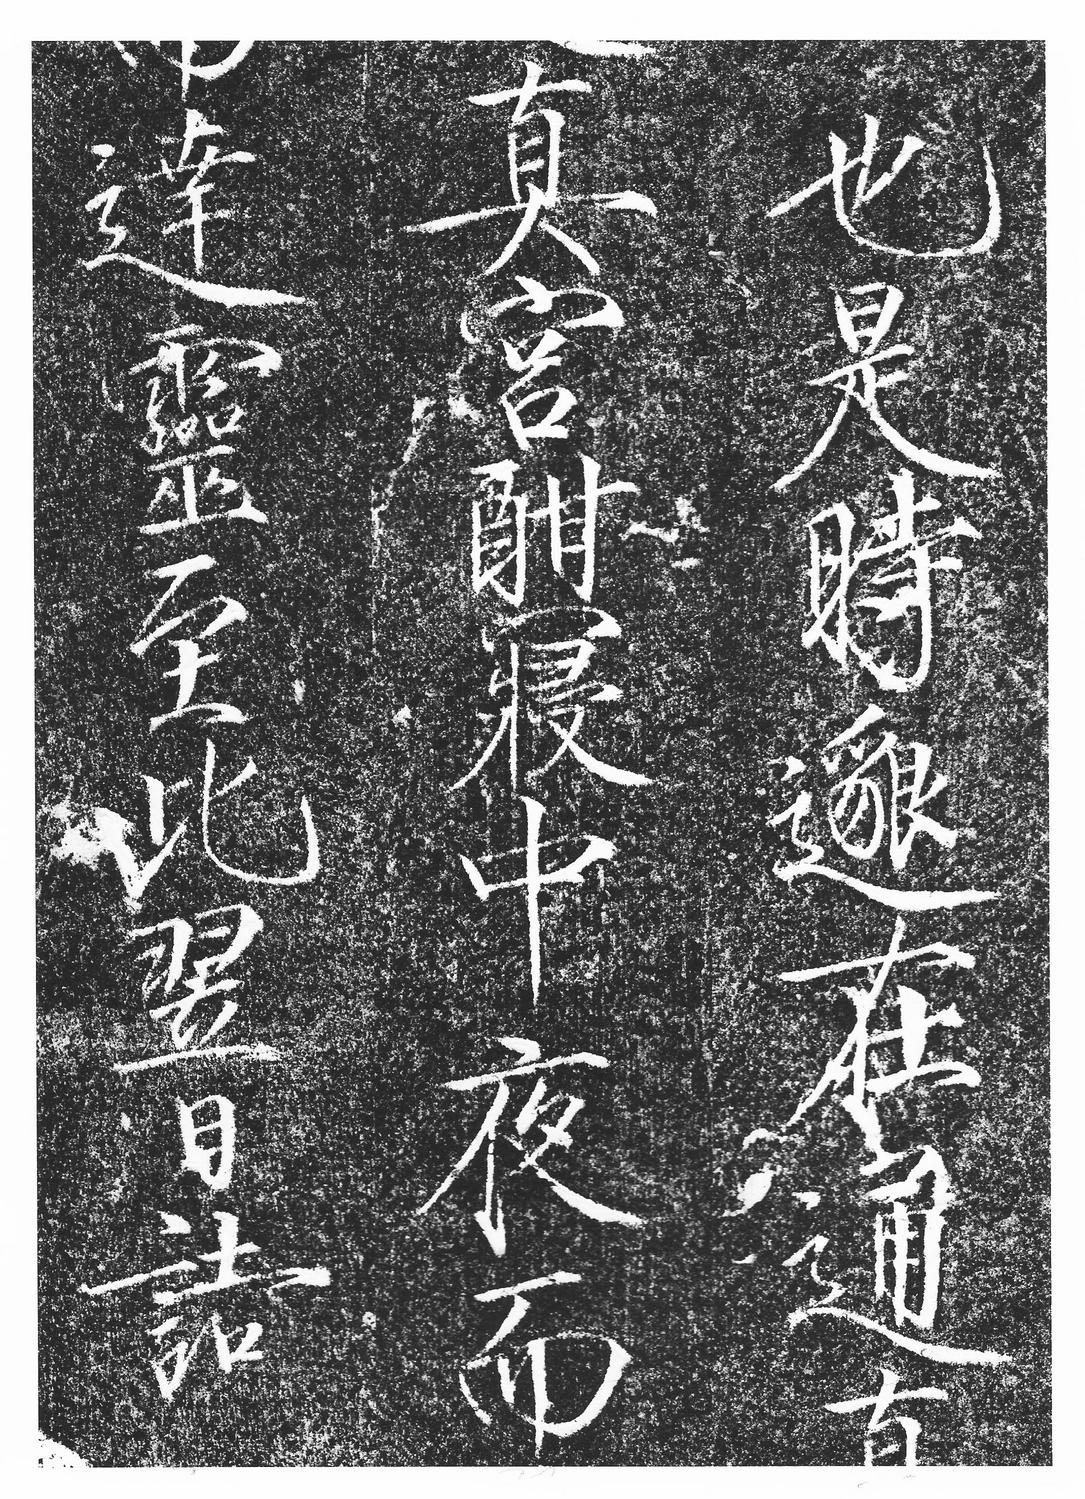 也是時邈在通直
真宮酣寢中夜而
達靈至此翌日詰